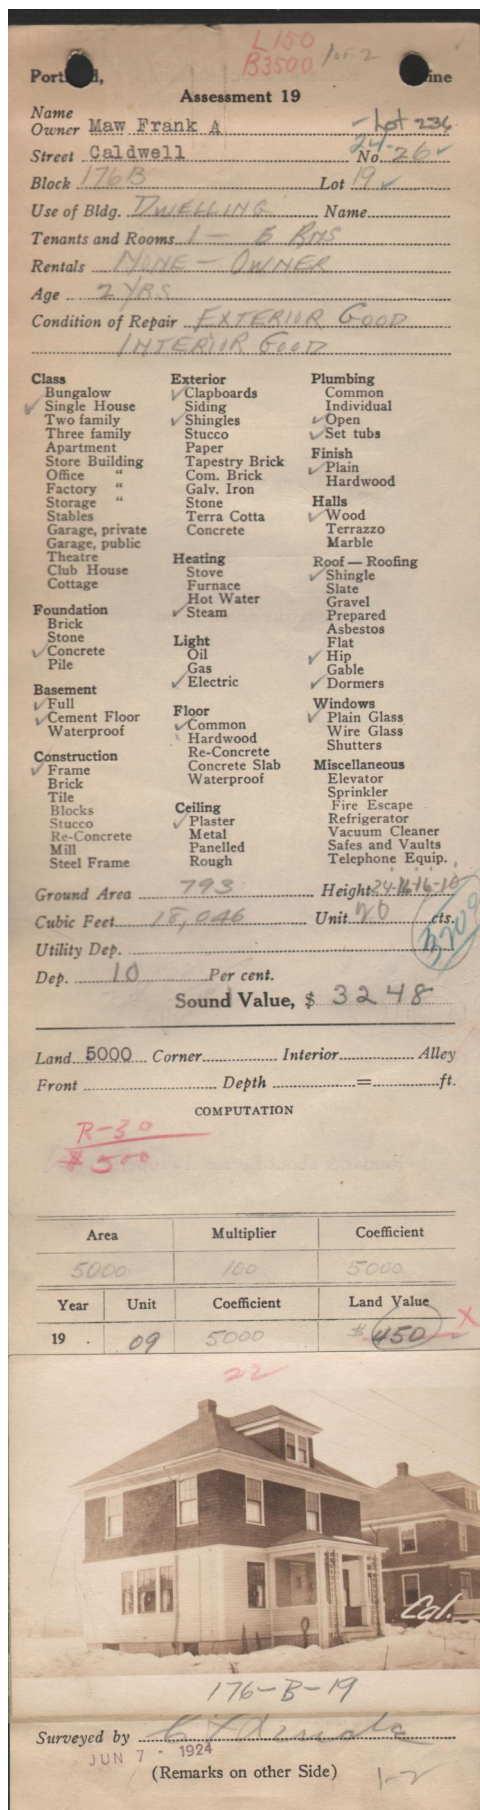 L 150
B3500 1 of 2
Portland, Maine
Assessment 19
Name
Owner Maw Frank A Lot 236
Street Caldwell No. 24-26
Block 176B Lot 19
Use of Bldg. DWELLING Name
Tenants and Rooms 1 - 6 RMS
Rentals NONE - OWNER
Age 2 YRS
Condition of Repair EXTERIOR GOOD
INTERIOR GOOD
Class
Bungalow
✓ Single House
Two family
Three family
Apartment
Store Building
Office "
Factory "
Storage "
Stables
Garage, private
Garage, public
Theatre
Club House
Cottage
Foundation
Brick
Stone
✓ Concrete
Pile
Basement
✓ Full
✓ Cement Floor
Waterproof
Construction
✓ Frame
Brick
Tile
Blocks
Stucco
Re-Concrete
Mill
Steel Frame
Exterior
✓ Clapboards
Siding
✓ Shingles
Stucco
Paper
Tapestry Brick
Com. Brick
Galv. Iron
Stone
Terra Cotta
Concrete
Heating
Stove
Furnace
Hot Water
✓ Steam
Light
Oil
Gas
✓ Electric
Floor
✓ Common
Hardwood
Re-Concrete
Concrete Slab
Waterproof
Ceiling
✓ Plaster
Metal
Panelled
Rough
Plumbing
Common
Individual
✓ Open
✓ Set tubs
Finish
✓ Plain
Hardwood
Halls
✓ Wood
Terrazzo
Marble
Roof — Roofing
✓ Shingle
Slate
Gravel
Prepared
Asbestos
Flat
✓ Hip
Gable
✓ Dormers
Windows
✓ Plain Glass
Wire Glass
Shutters
Miscellaneous
Elevator
Sprinkler
Fire Escape
Refrigerator
Vacuum Cleaner
Safes and Vaults
Telephone Equip.
Ground Area 793 Height 24-16-16-10
Cubic Feet 18,046 Unit 20 cts.
3200
Utility Dep.
Dep. 10 Per cent.
Sound Value, $ 3248
Land 5000 Corner Interior Alley
Front Depth = ft.
COMPUTATION
R-30
$ 500
Area Multiplier Coefficient
5000 100 5000
Year Unit Coefficient Land Value
19 . 09 5000 $450 X
22
Cal.
176-B-19
Surveyed by
JUN 7 - 1924
(Remarks on other Side) 1-2